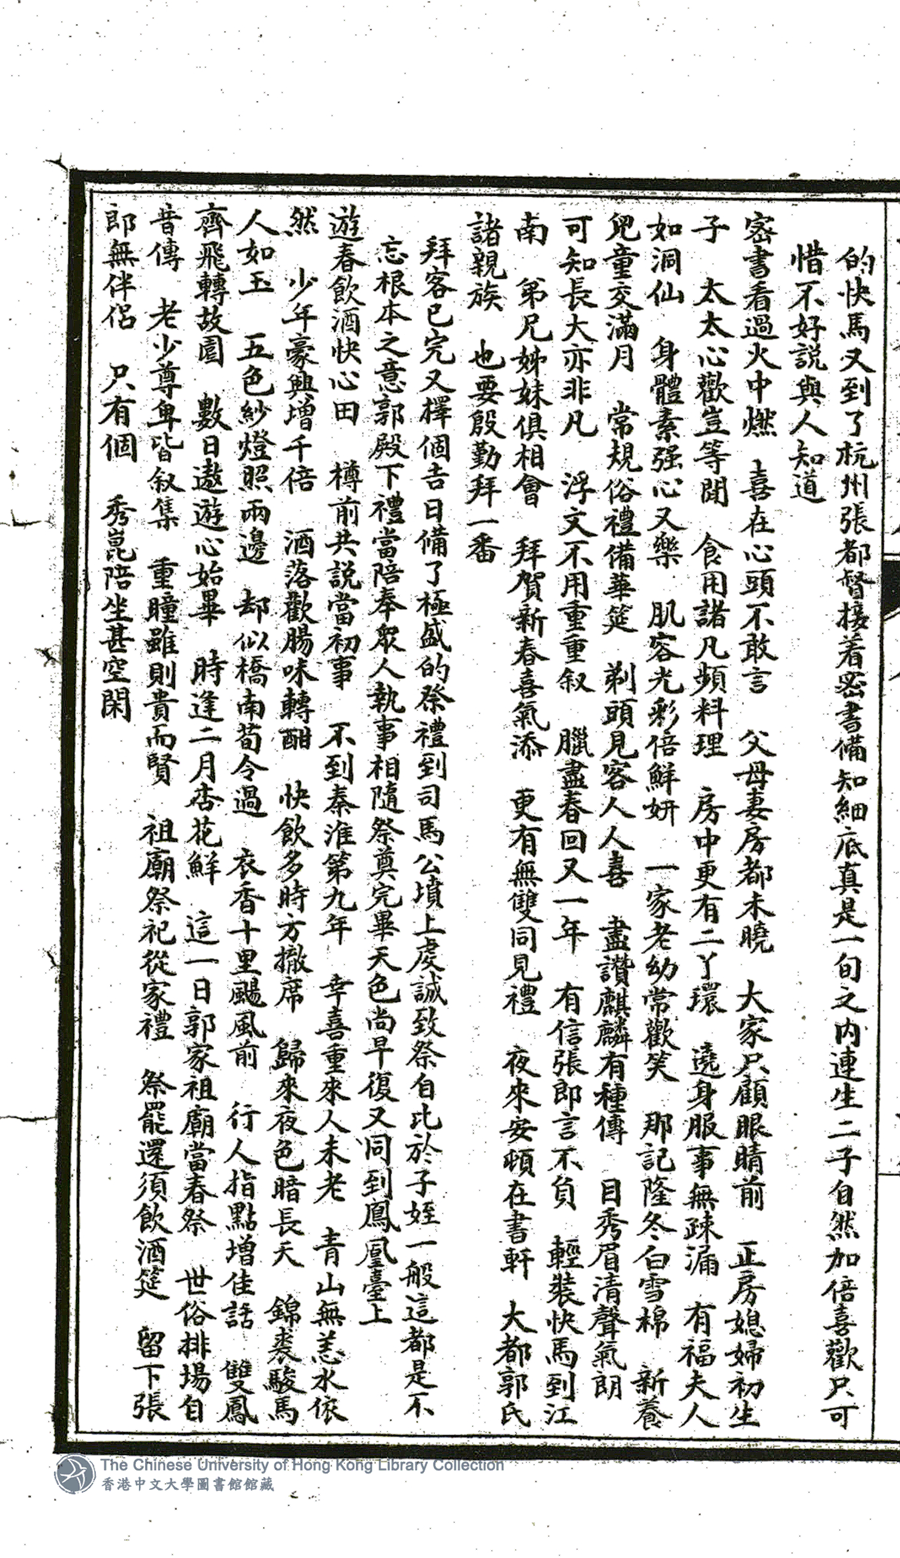 的快馬又到了杭州張都督接着密書備知細底真是一旬之内連生二子自然加倍喜歡只可
惜不好説與人知道
密書看過火中燃　喜在心頭不敢言　父母妻房都未曉　大家只顧眼睛前　正房媳婦初生
子　太太心歡豈等閒　食用諸凡頻料理　房中更有二丫環　遶身服事無疎漏　有福夫人
如洞仙　身體素强心又樂　肌容光彩倍鮮妍　一家老幼常歡笑　那記隆冬白雪棉　新養
兒童交滿月　常規俗禮備華筵　剃頭見客人人喜　盡讚麒麟有種傳　目秀眉清聲氣朗
可知長大亦非凡　浮文不用重重叙　臘盡春回又一年　有信張郎言不負　輕裝快馬到江
南　第兄姊妹俱相會　拜賀新春喜氣添　更有無雙同見禮　夜來安頓在書軒　大都郭氏
諸親族　也要殷勤拜一番
拜客已完又擇個吉日備了極盛的祭禮到司馬公墳上虔誠致祭自比於子姪一般這都是不
忘根本之意郭殿下禮當陪奉眾人執事相隨祭奠完畢天色尚早復又同到鳳凰臺上
遊春飲酒快心田　樽前共説當初事　不到秦淮第九年　幸喜重來人未老　青山無恙水依
然　少年豪興增千倍　酒落歡腸味轉酣　快飲多時方撤席　歸來夜色暗長天　錦裘駿馬
人如玉　五色紗燈照兩邊　却似橋南荀令過　衣香十里颺風前　行人指點增佳話　雙鳳
齊飛轉故園　數日遨遊心始畢　時逢二月杏花鮮　這一日郭家祖廟當春祭　世俗排場自
昔傳　老少尊卑皆叙集　重瞳雖則貴而賢　祖廟祭祀從家禮　祭罷還須飲酒筵　留下張
郎無伴侶　只有個　秀崑陪坐甚空閑
The Chinese University of Hong Kong Library Collection
香港中文大學圖書館館藏